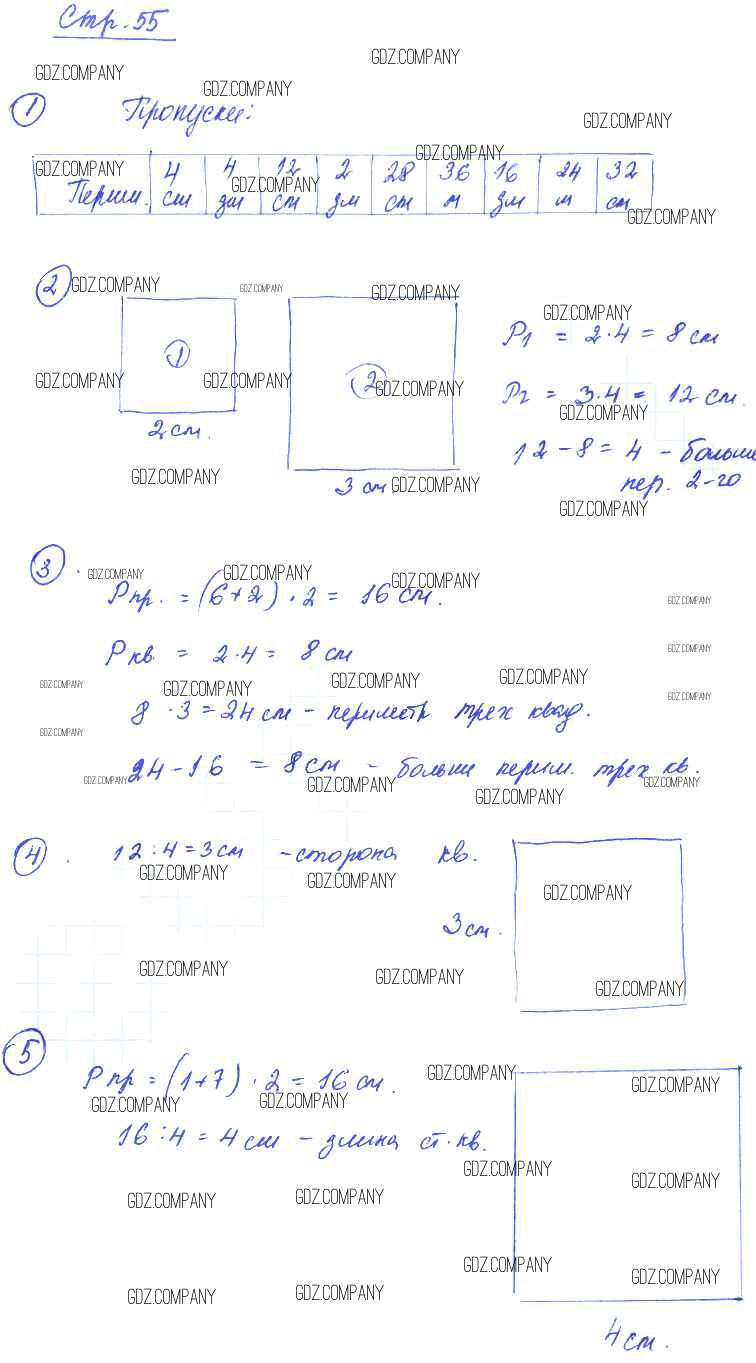 Стр. 55
GDZ.COMPANY GDZ.COMPANY
GDZ.COMPANY
① Пропуски: GDZ.COMPANY
GDZ.COMPANY GDZ.COMPANY GDZ.COMPANY
Перим. 4 4 12 2 28 36 16 24 32
см дм см дм см м дм м см
GDZ.COMPANY
② GDZ.COMPANY GDZ.COMPANY GDZ.COMPANY GDZ.COMPANY
① P1 = 2·4 = 8 см
GDZ.COMPANY GDZ.COMPANY ② GDZ.COMPANY P2 = 3·4 = 12 см.
GDZ.COMPANY
2 см. 12-8=4 - больше
GDZ.COMPANY 3 см GDZ.COMPANY пер. 2-го
GDZ.COMPANY
③. GDZ.COMPANY GDZ.COMPANY GDZ.COMPANY
Pпр. = (6+2)·2 = 16 см. GDZ.COMPANY
Pкв = 2·4 = 8 см GDZ.COMPANY
GDZ.COMPANY GDZ.COMPANY GDZ.COMPANY GDZ.COMPANY GDZ.COMPANY
8·3=24 см - периметр трех квад.
GDZ.COMPANY
24-16 = 8 см - больше перим. трех кв.
GDZ.COMPANY GDZ.COMPANY GDZ.COMPANY GDZ.COMPANY
④. 12:4=3 см - сторона кв.
GDZ.COMPANY GDZ.COMPANY GDZ.COMPANY
3 см.
GDZ.COMPANY GDZ.COMPANY GDZ.COMPANY
⑤ Pпр = (1+7)·2 = 16 см. GDZ.COMPANY GDZ.COMPANY
GDZ.COMPANY GDZ.COMPANY
16:4 = 4 см - длина ст. кв.
GDZ.COMPANY GDZ.COMPANY
GDZ.COMPANY GDZ.COMPANY
GDZ.COMPANY GDZ.COMPANY
GDZ.COMPANY GDZ.COMPANY
4 см.